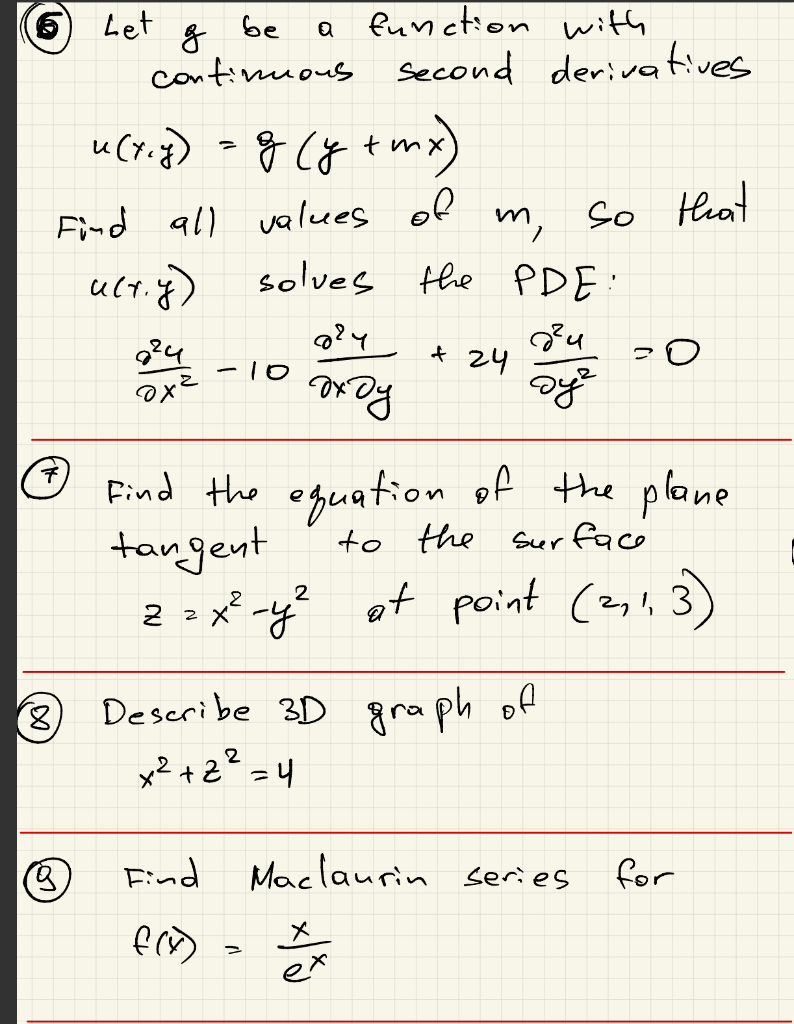 ⑥ Let g be a function with
continuous second derivatives
u(x,y) = g(y + mx)
Find all values of m, so that
u(x,y) solves the PDE:
∂²u/∂x² - 10 ∂²u/∂x∂y + 24 ∂²u/∂y² = 0
⑦ Find the equation of the plane
tangent to the surface
z = x² - y² at point (2, 1, 3)
⑧ Describe 3D graph of
x² + z² = 4
⑨ Find Maclaurin series for
f(x) = x/eˣ